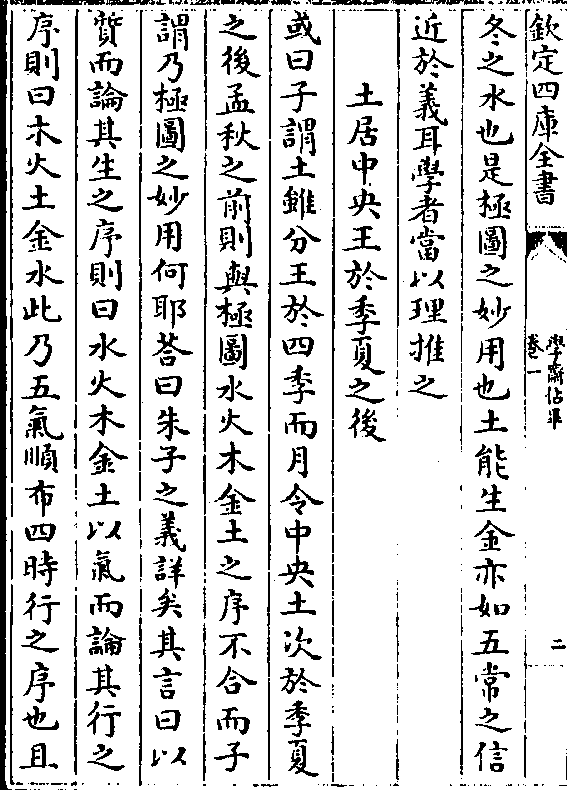 欽定四庫全書
學齋佔畢
卷一
二
冬之水也是極圖之妙用也土能生金亦如五常之信
近於義耳學者當以理推之
土居中央王於季夏之後
或曰子謂土雖分王於四季而月令中央土次於季夏
之後孟秋之前則與極圖水火木金土之序不合而子
謂乃極圖之妙用何耶荅曰朱子之義詳矣其言曰以
質而論其生之序則曰水火木金土以氣而論其行之
序則曰木火土金水此乃五氣順布四時行之序也且